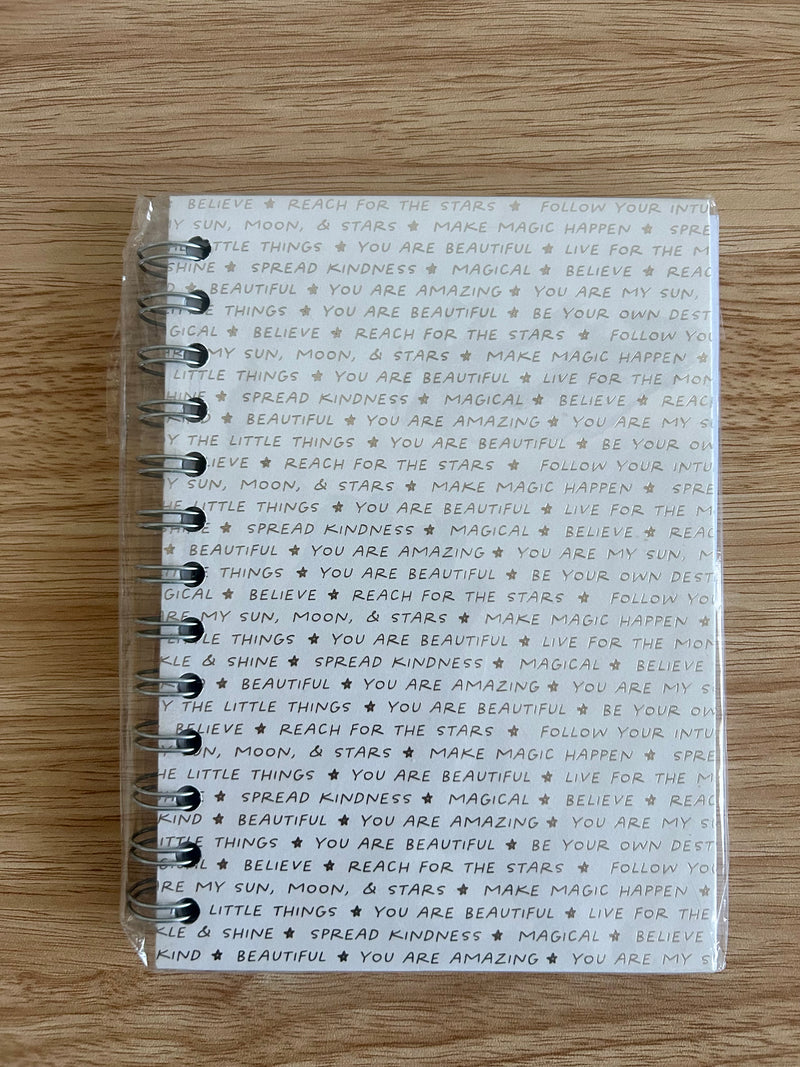 BELIEVE ★ REACH FOR THE STARS ★ FOLLOW YOUR INTU
MY SUN, MOON, & STARS ★ MAKE MAGIC HAPPEN ★ SPRE
LITTLE THINGS ★ YOU ARE BEAUTIFUL ★ LIVE FOR THE M
SHINE ★ SPREAD KINDNESS ★ MAGICAL ★ BELIEVE ★ REAC
★ BEAUTIFUL ★ YOU ARE AMAZING ★ YOU ARE MY SUN,
THINGS ★ YOU ARE BEAUTIFUL ★ BE YOUR OWN DEST
GICAL ★ BELIEVE ★ REACH FOR THE STARS ★ FOLLOW YOU
MY SUN, MOON, & STARS ★ MAKE MAGIC HAPPEN ★
LITTLE THINGS ★ YOU ARE BEAUTIFUL ★ LIVE FOR THE MOM
HINE ★ SPREAD KINDNESS ★ MAGICAL ★ BELIEVE ★ REAC
KIND ★ BEAUTIFUL ★ YOU ARE AMAZING ★ YOU ARE MY S
Y THE LITTLE THINGS ★ YOU ARE BEAUTIFUL ★ BE YOUR OW
LIEVE ★ REACH FOR THE STARS ★ FOLLOW YOUR INTU
Y SUN, MOON, & STARS ★ MAKE MAGIC HAPPEN ★ SPRE
HE LITTLE THINGS ★ YOU ARE BEAUTIFUL ★ LIVE FOR THE M
SHINE ★ SPREAD KINDNESS ★ MAGICAL ★ BELIEVE ★ REAC
★ BEAUTIFUL ★ YOU ARE AMAZING ★ YOU ARE MY SUN, M
THINGS ★ YOU ARE BEAUTIFUL ★ BE YOUR OWN DEST
GICAL ★ BELIEVE ★ REACH FOR THE STARS ★ FOLLOW YOU
RE MY SUN, MOON, & STARS ★ MAKE MAGIC HAPPEN ★
LITTLE THINGS ★ YOU ARE BEAUTIFUL ★ LIVE FOR THE MOM
KLE & SHINE ★ SPREAD KINDNESS ★ MAGICAL ★ BELIEVE
★ BEAUTIFUL ★ YOU ARE AMAZING ★ YOU ARE MY S
Y THE LITTLE THINGS ★ YOU ARE BEAUTIFUL ★ BE YOUR OW
BELIEVE ★ REACH FOR THE STARS ★ FOLLOW YOUR INTU
SUN, MOON, & STARS ★ MAKE MAGIC HAPPEN ★ SPRE
HE LITTLE THINGS ★ YOU ARE BEAUTIFUL ★ LIVE FOR THE M
★ SPREAD KINDNESS ★ MAGICAL ★ BELIEVE ★ REAC
KIND ★ BEAUTIFUL ★ YOU ARE AMAZING ★ YOU ARE MY S
LITTLE THINGS ★ YOU ARE BEAUTIFUL ★ BE YOUR OWN DEST
★ BELIEVE ★ REACH FOR THE STARS ★ FOLLOW YOU
RE MY SUN, MOON, & STARS ★ MAKE MAGIC HAPPEN ★
LITTLE THINGS ★ YOU ARE BEAUTIFUL ★ LIVE FOR THE
KLE & SHINE ★ SPREAD KINDNESS ★ MAGICAL ★ BELIEVE
KIND ★ BEAUTIFUL ★ YOU ARE AMAZING ★ YOU ARE MY S